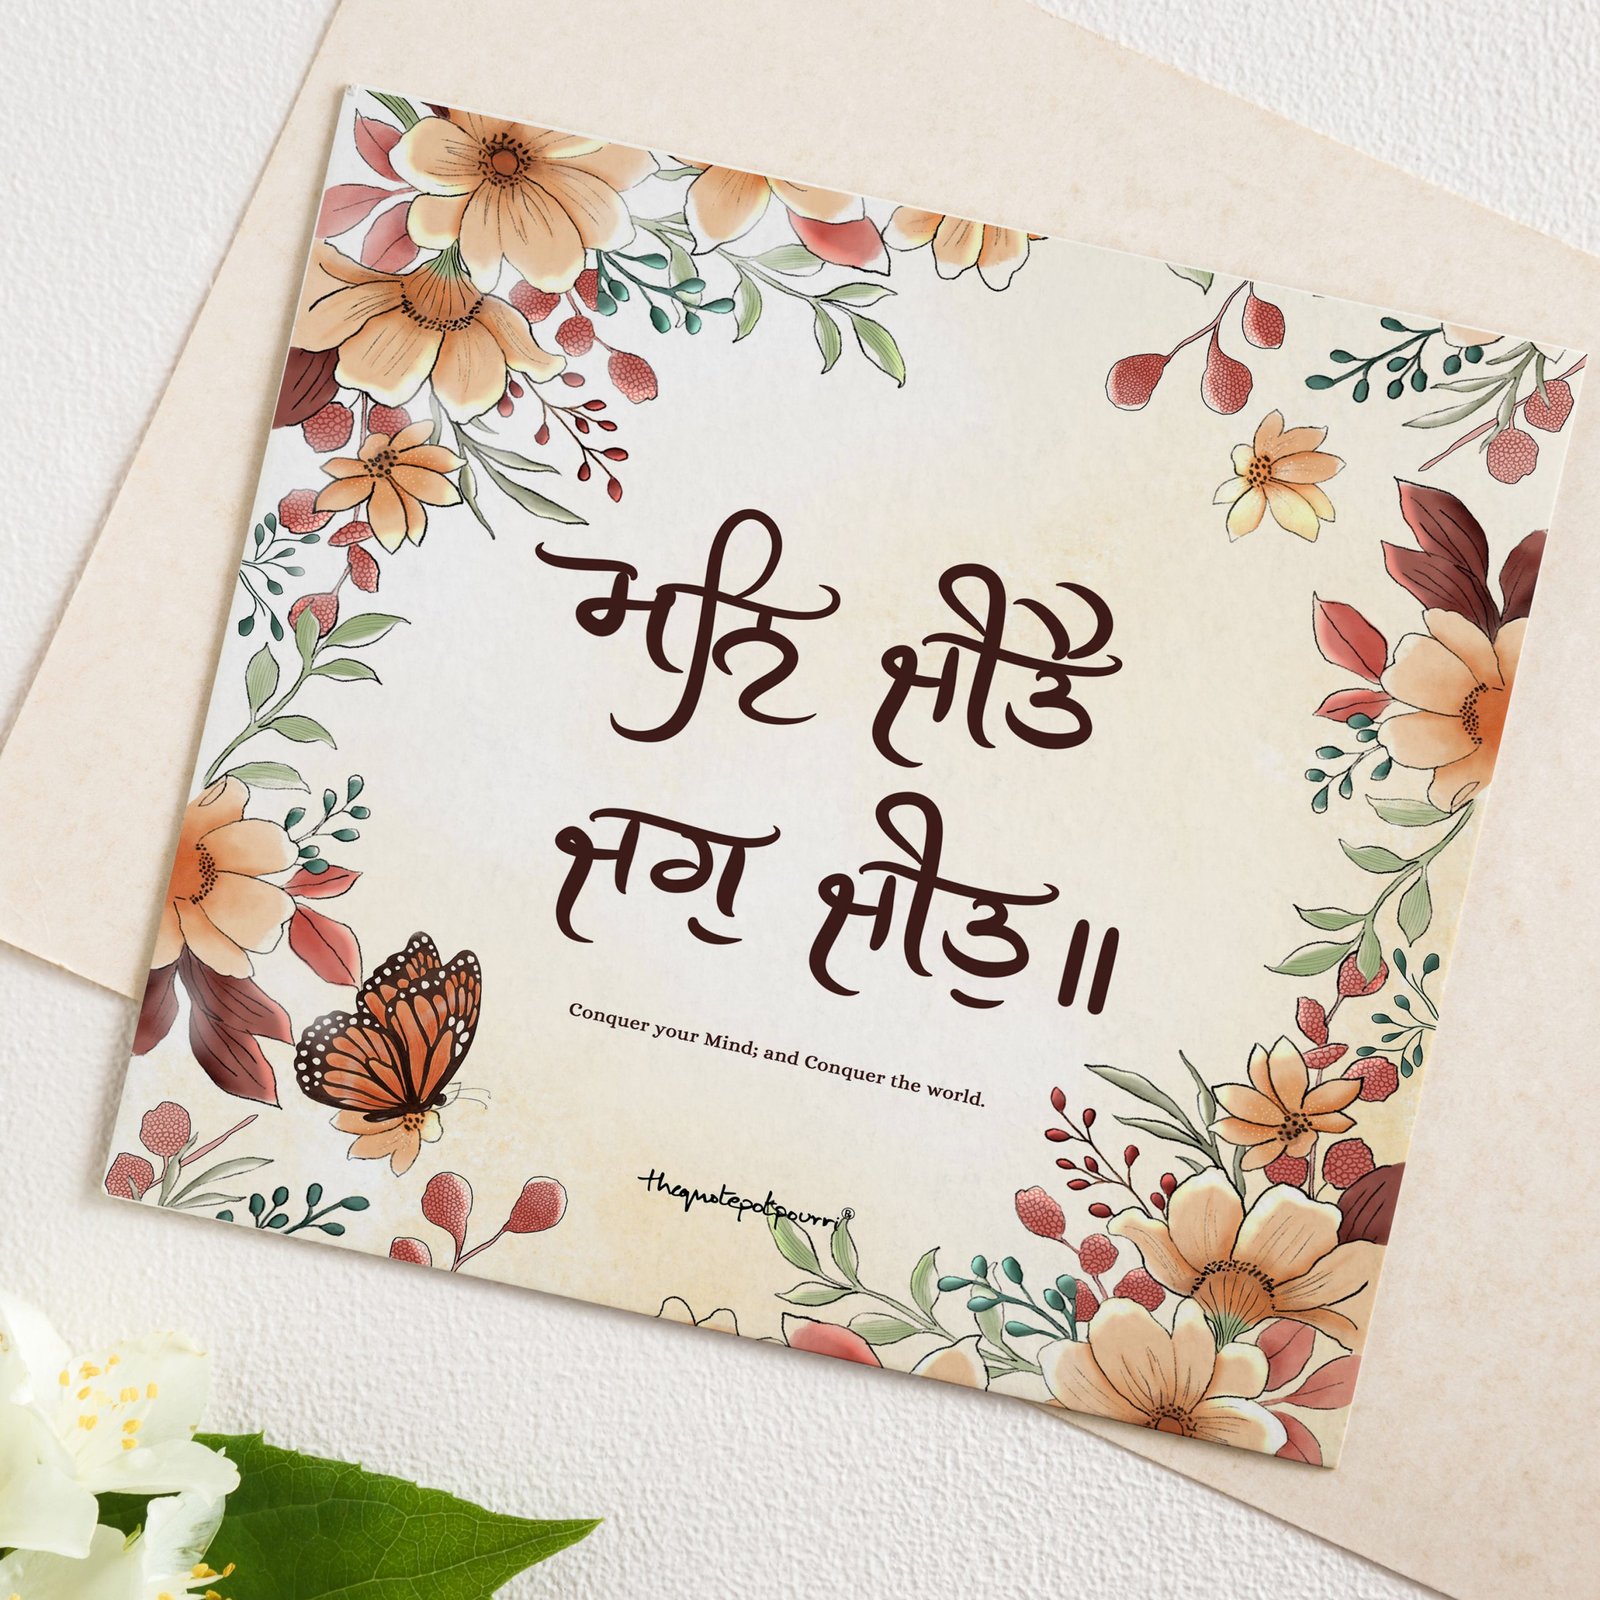 ਮਨਿ ਜੀਤੈ
ਜਗੁ ਜੀਤੁ॥
Conquer your Mind; and Conquer the world.
thequotepotpourri®